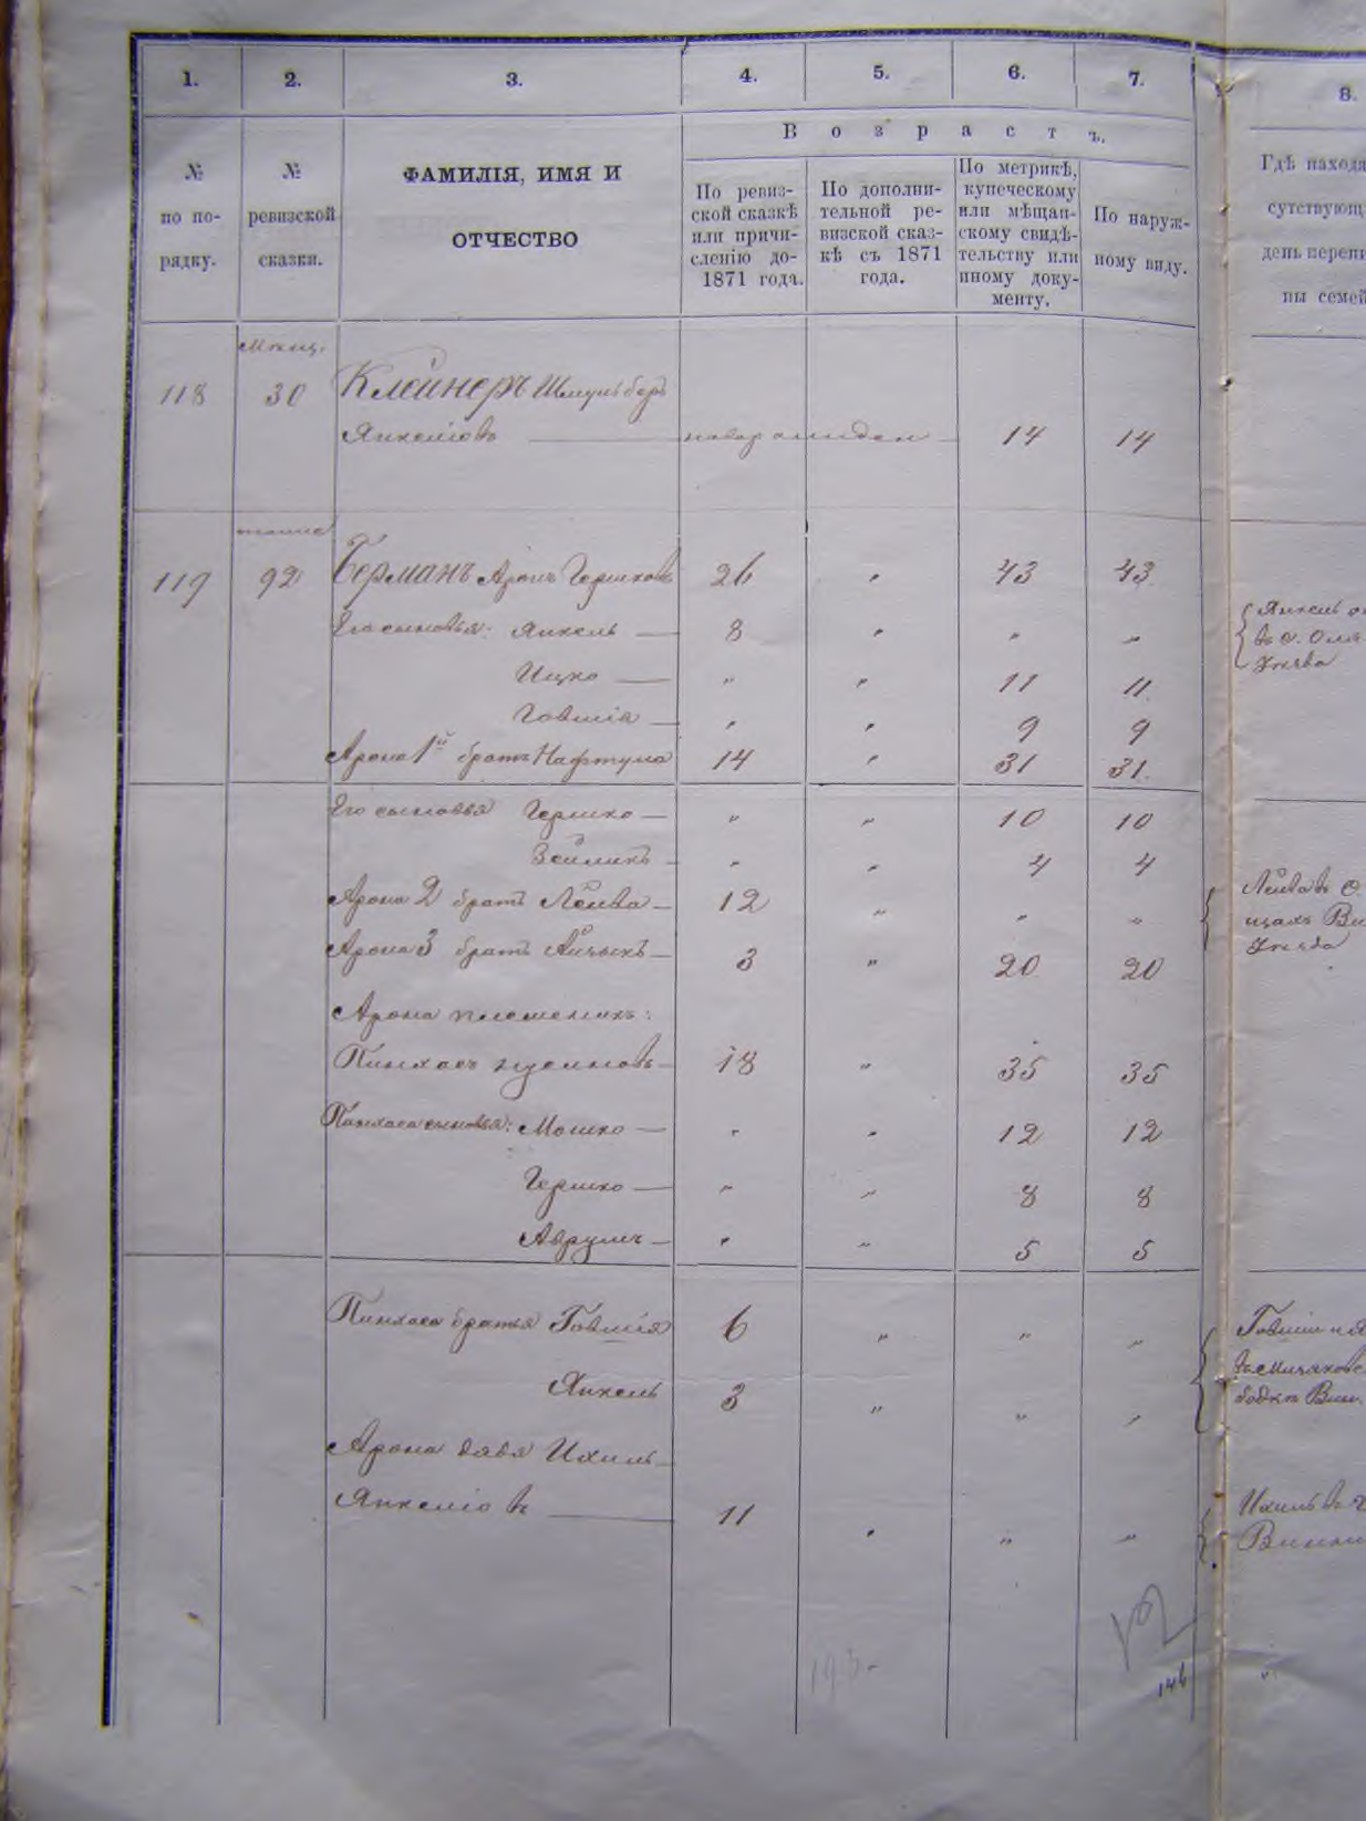 1. 2. 3. 4. 5. 6. 7. 8.
Возрастъ.
№ по по-рядку.
№ ревизской сказки.
ФАМИЛІЯ, ИМЯ И
ОТЧЕСТВО
По ревиз-
ской сказкѣ
или причи-
сленію до-
1871 года.
По дополни-
тельной ре-
визской сказ-
кѣ съ 1871
года.
По метрикѣ,
купеческому
или мѣщан-
скому свидѣ-
тельству или
иному доку-
менту.
По наруж-
ному виду.
Гдѣ находя
сутствующ
день переп
ны семей
118 30 Клейнеръ Шмуль беръ
Янкеліовъ 14 14
119 92 Берманъ Аронъ Гершковъ 26 " 43 43
Его сыновья: Янкель — 8 " " "
Ицко — " " 11 11.
Говшія — " " 9 9
Арона 1й братъ Нафтула 14 " 31 31.
Его сыновья Гершко — " " 10 10
Зейликъ — " " 4 4
Арона 2 братъ Лейва — 12 " " "
Арона 3 братъ Айзыкъ — 3 " 20 20
Арона племеникъ:
Пинхасъ — 18 " 35 35
Пинхаса сыновья: Мошко — " " 12 12
Гершко — " " 8 8
Аврумъ — " " 5 5
Пинхаса братья Говшія 6 " " "
Янкель 3 " " "
Арона дядя Ихиль —
Янкеліовъ — 11 " " "
Янкель
въ с.
Уезда
Лейва въ с.
Уезда
Говшія и Я
Ихиль въ
146